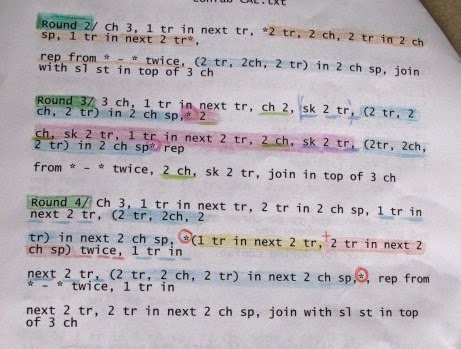 CAL.txt
Round 2/ Ch 3, 1 tr in next tr, *2 tr, 2 ch, 2 tr in 2 ch
sp, 1 tr in next 2 tr*,
rep from * - * twice, (2 tr, 2ch, 2 tr) in 2 ch sp, join
with sl st in top of 3 ch
Round 3/ 3 ch, 1 tr in next tr, ch 2, sk 2 tr, (2 tr, 2
ch, 2 tr) in 2 ch sp,* 2
ch, sk 2 tr, 1 tr in next 2 tr, 2 ch, sk 2 tr, (2tr, 2ch,
2 tr) in 2 ch sp* rep
from * - * twice, 2 ch, sk 2 tr, join in top of 3 ch
Round 4/ Ch 3, 1 tr in next tr, 2 tr in 2 ch sp, 1 tr in
next 2 tr, (2 tr, 2ch, 2
tr) in next 2 ch sp, *(1 tr in next 2 tr, 2 tr in next 2
ch sp) twice, 1 tr in
next 2 tr, (2 tr, 2 ch, 2 tr) in next 2 ch sp,*, rep from
* - * twice, 1 tr in
next 2 tr, 2 tr in next 2 ch sp, join with sl st in top
of 3 ch